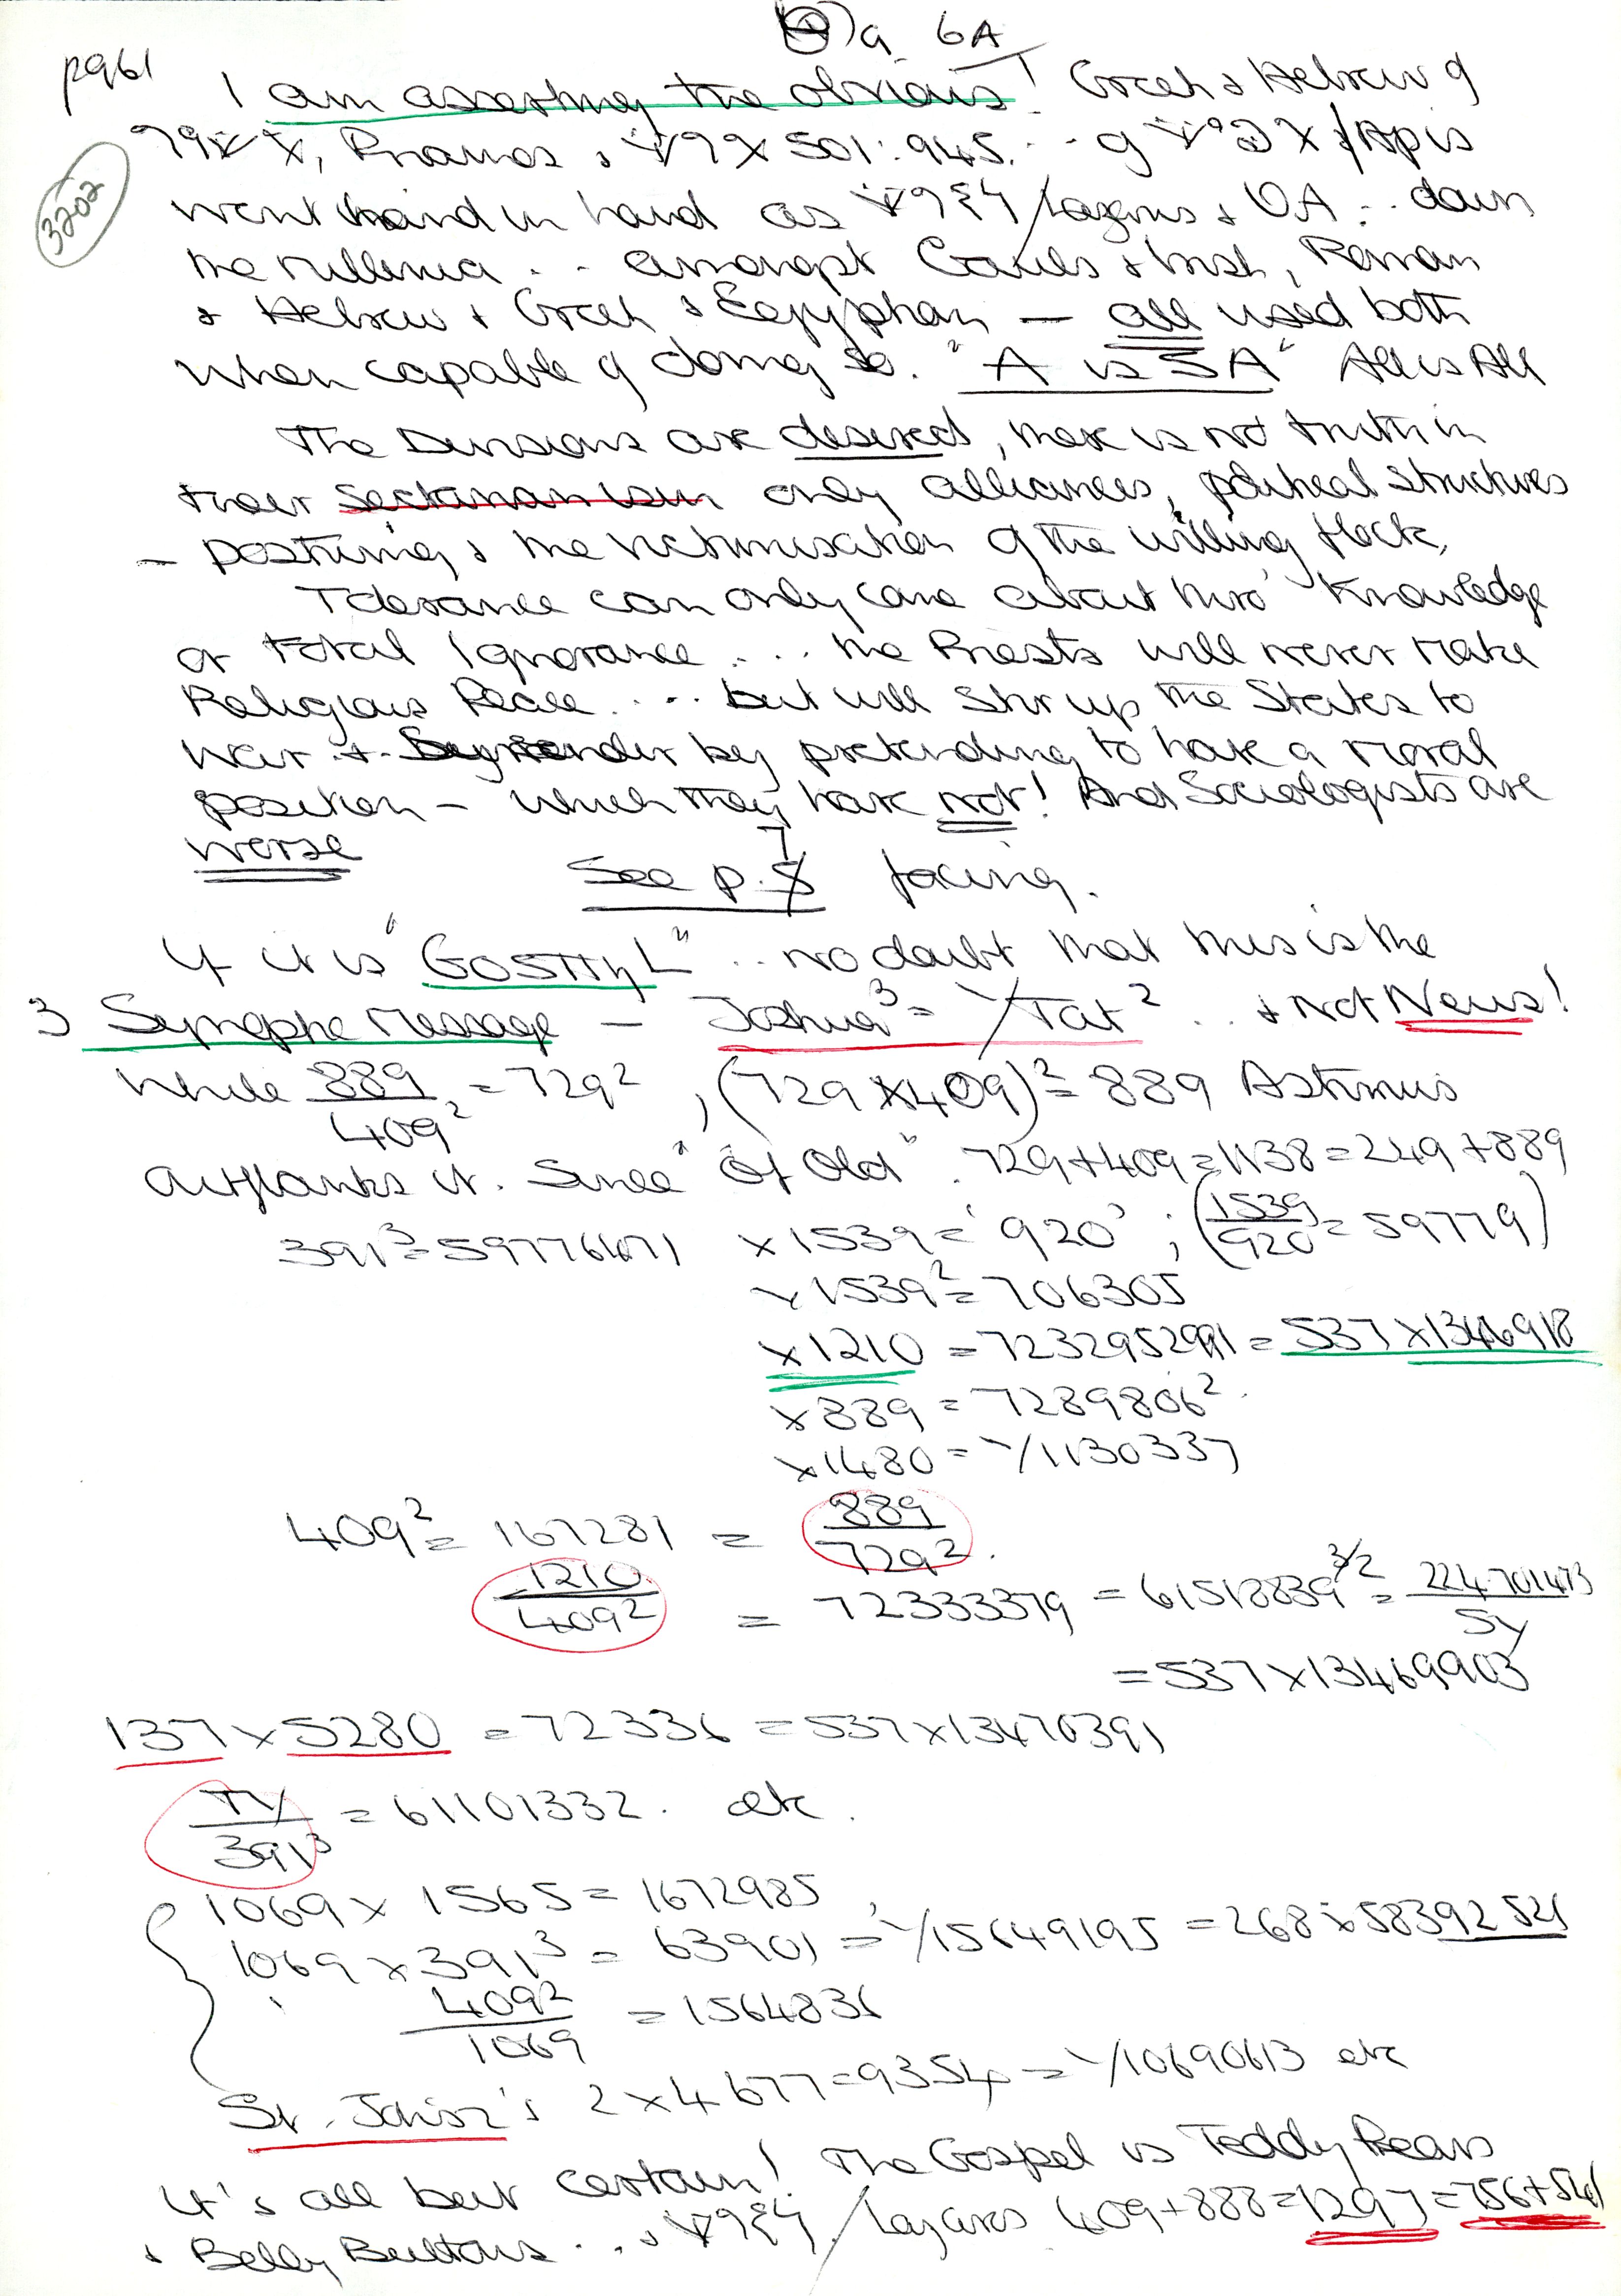 a 6A
pg61
I am asserting the obvious! Greek & Hebrew of
Pramos & 501:945. .. of /Apis
went hand in hand as /Lazarus & OA .. down
the millenia . . . amongst Gauls & Irish, Roman
& Hebrew & Greek & Eegyptian — all used both
when capable of doing so. "A is SA" All is All
The Divisions are desired, there is not truth in
their sectarianism only alliances, political structures
- posturing, & the victimisation of the willing flock,
Tolerance can only come about thro' Knowledge
or total Ignorance .... the Priests will never make
Religious Peace. ... but will stir up the States to
War + by pretending to have a moral
position - which they have not! And Sociologists are
worse
See p. 7 facing.
If it is "GOSTTYL" .. no doubt that this is the
3 Synoptic Message - Joshua³ = Y/Tat² .. & not News!
While 889/409² = 729² , (729 x 409)² = 889 Astinus
outflanks it. Since "of Old" . 729+409=1138=249+889
391³=59776471 x1539='920' ; (1539/920 = 59779)
x1539² = 706305
x1210 = 7232952991 = 537 x 1346918
x889 = 7289806².
x1480 = Y/1130337
409² = 167281 = 889/729².
1210/409² = 72333379 = 61518839^3/2 = 224.701473/5Y
= 537 x 13469903
137 x 5280 = 72336 = 537 x 13470391
TY/391³ = 61101332. etc.
1069 x 1565 = 1672985
1069 x 391³ = 63901 = Y/15649195 = 268 x 58392521
409²/1069 = 1564836
St. John's 2 x 4677 = 9354 = Y/10690613 etc
It's all but certain! The Gospel is Teddy Bears
& Belly Buttons .. & /Lazarus 409+888=1297=756+541
3202